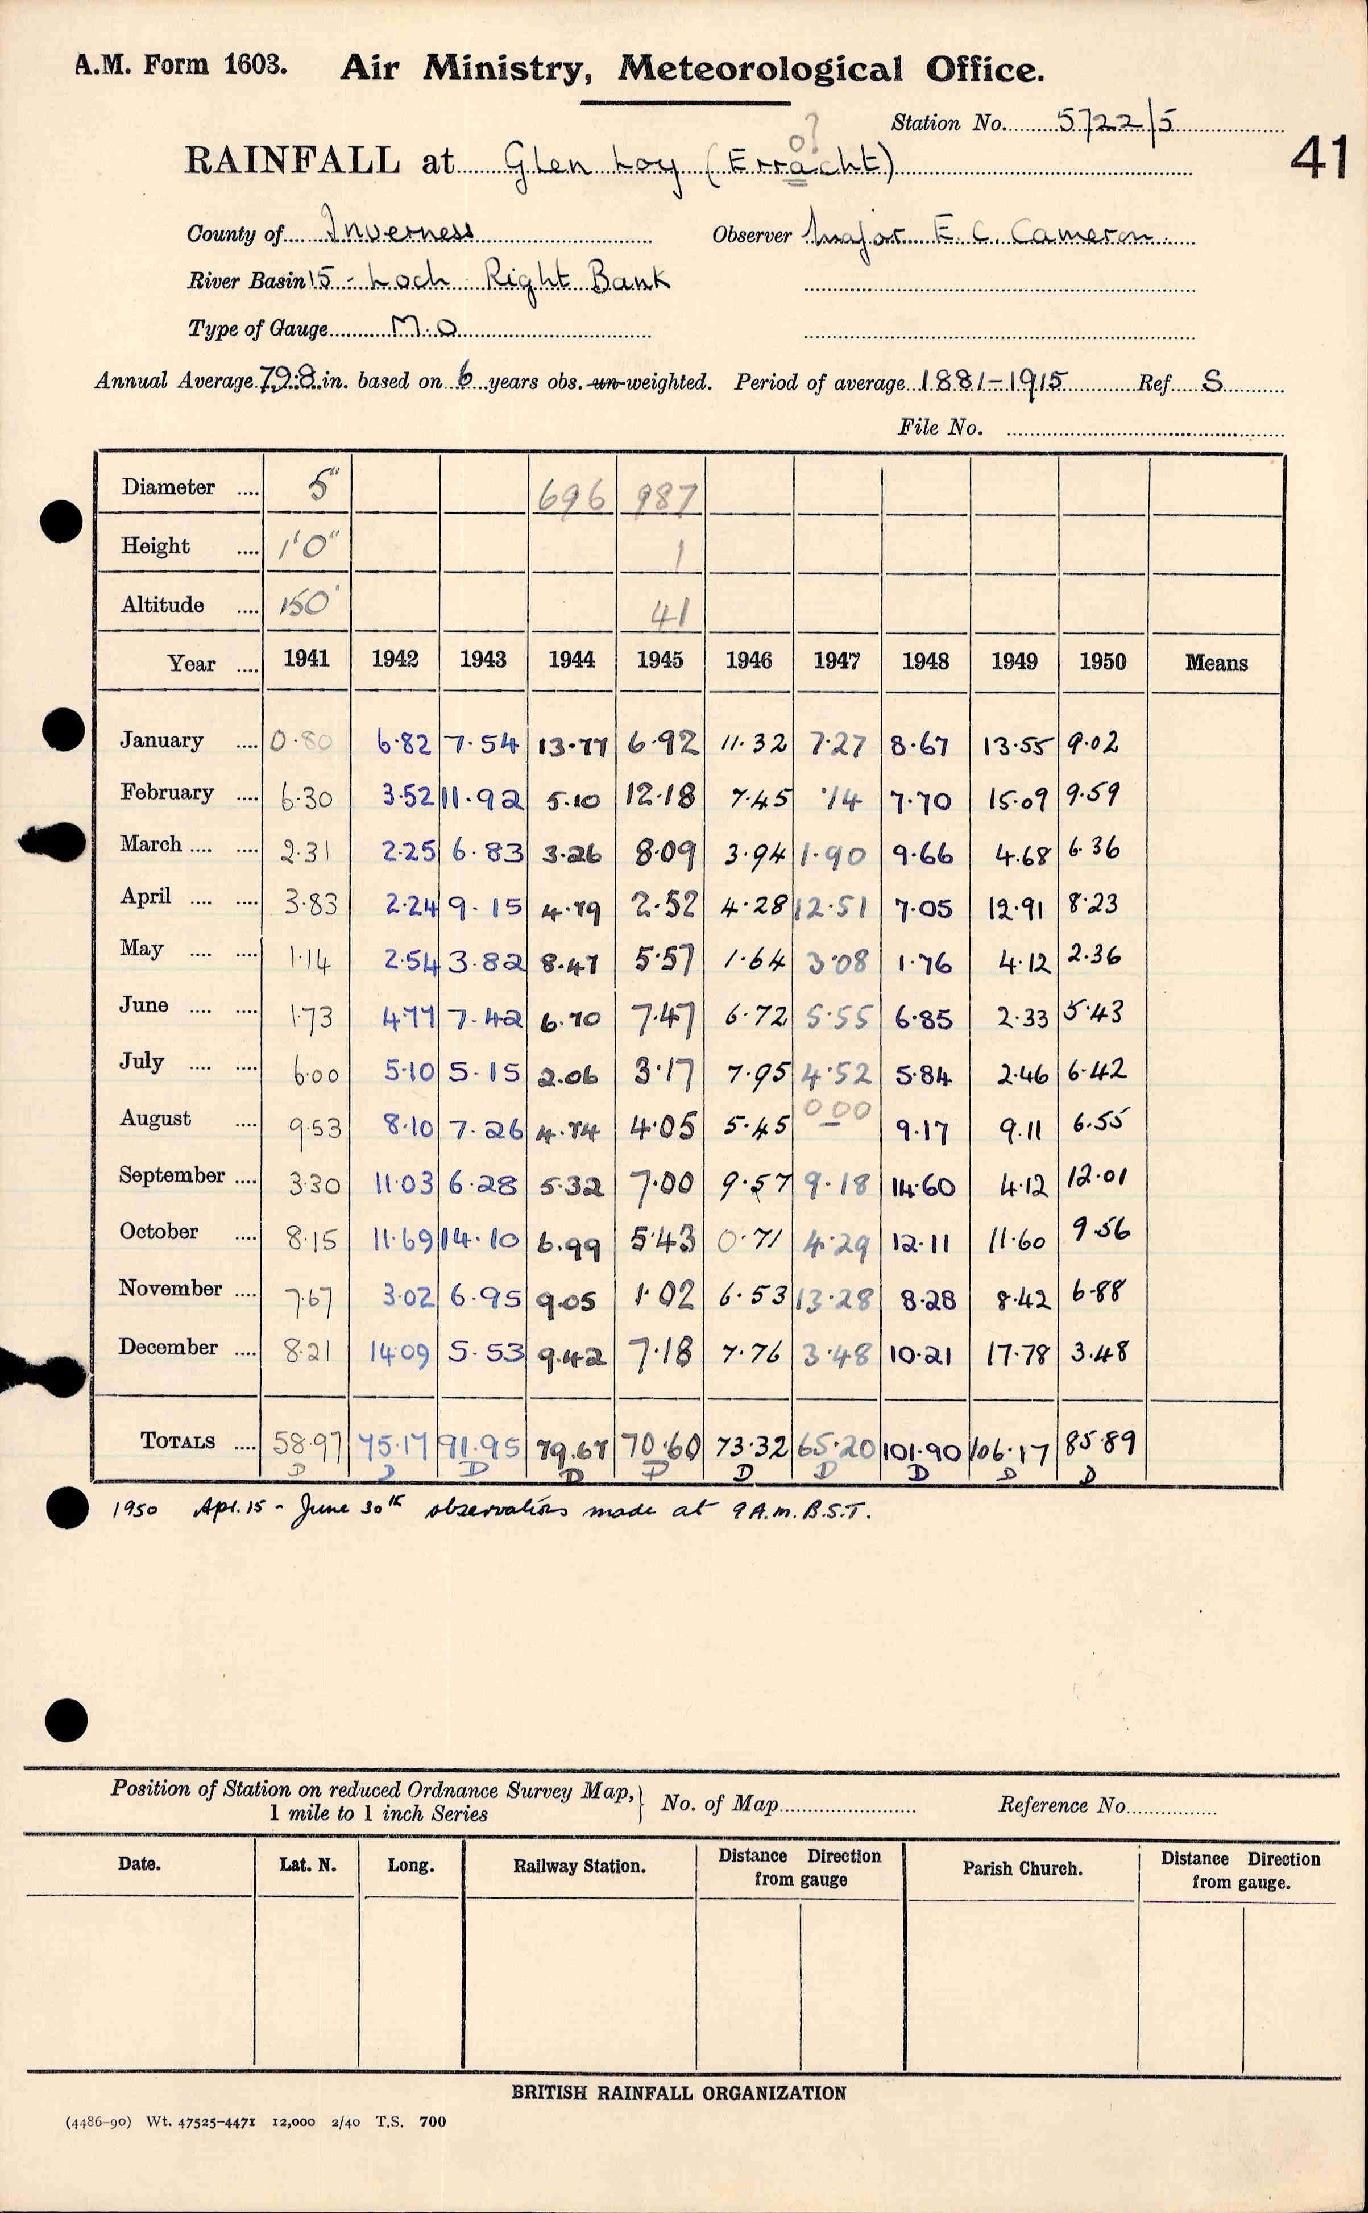 A.M. Form 1603. Air Ministry, Meteorological Office.
Station No. 5722/5
41
o?
RAINFALL at Glen Loy (Erracht)
County of Inverness Observer Major E. C. Cameron
River Basin 15 - Loch Right Bank
Type of Gauge M.O
Annual Average 79.8 in. based on 6 years obs. un-weighted. Period of average 1881-1915 Ref S
File No.
Diameter .... 5" 696 987
Height .... 1'0" 1
Altitude .... 150' 41
Year .... 1941 1942 1943 1944 1945 1946 1947 1948 1949 1950 Means
January .... 0.80 6.82 7.54 13.77 6.92 11.32 7.27 8.67 13.55 9.02
February .... 6.30 3.52 11.92 5.10 12.18 7.45 .14 7.70 15.09 9.59
March .... .... 2.31 2.25 6.83 3.26 8.09 3.94 1.90 9.66 4.68 6.36
April .... .... 3.83 2.24 9.15 4.79 2.52 4.28 12.51 7.05 12.91 8.23
May .... .... 1.14 2.54 3.82 8.47 5.57 1.64 3.08 1.76 4.12 2.36
June .... .... 1.73 4.77 7.42 6.70 7.47 6.72 5.55 6.85 2.33 5.43
July .... .... 6.00 5.10 5.15 2.06 3.17 7.95 4.52 5.84 2.46 6.42
August .... 9.53 8.10 7.26 4.74 4.05 5.45 0.00 9.17 9.11 6.55
September .... 3.30 11.03 6.28 5.32 7.00 9.57 9.18 14.60 4.12 12.01
October .... 8.15 11.69 14.10 6.99 5.43 0.71 4.29 12.11 11.60 9.56
November .... 7.67 3.02 6.95 9.05 1.02 6.53 13.28 8.28 8.42 6.88
December .... 8.21 14.09 5.53 9.42 7.18 7.76 3.48 10.21 17.78 3.48
TOTALS .... 58.97 75.17 91.95 79.67 70.60 73.32 65.20 101.90 106.17 85.89
D D D D D D D D D D
1950 Apl. 15 - June 30th observations made at 9 A.m. B.S.T.
Position of Station on reduced Ordnance Survey Map, } No. of Map Reference No.
1 mile to 1 inch Series
Date. Lat. N. Long. Railway Station. Distance Direction from gauge Parish Church. Distance Direction from gauge.
BRITISH RAINFALL ORGANIZATION
(4486-90) Wt. 47525-4471 12,000 2/40 T.S. 700